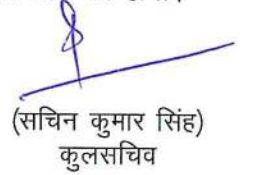 (सचिन कुमार सिंह)
कुलसचिव